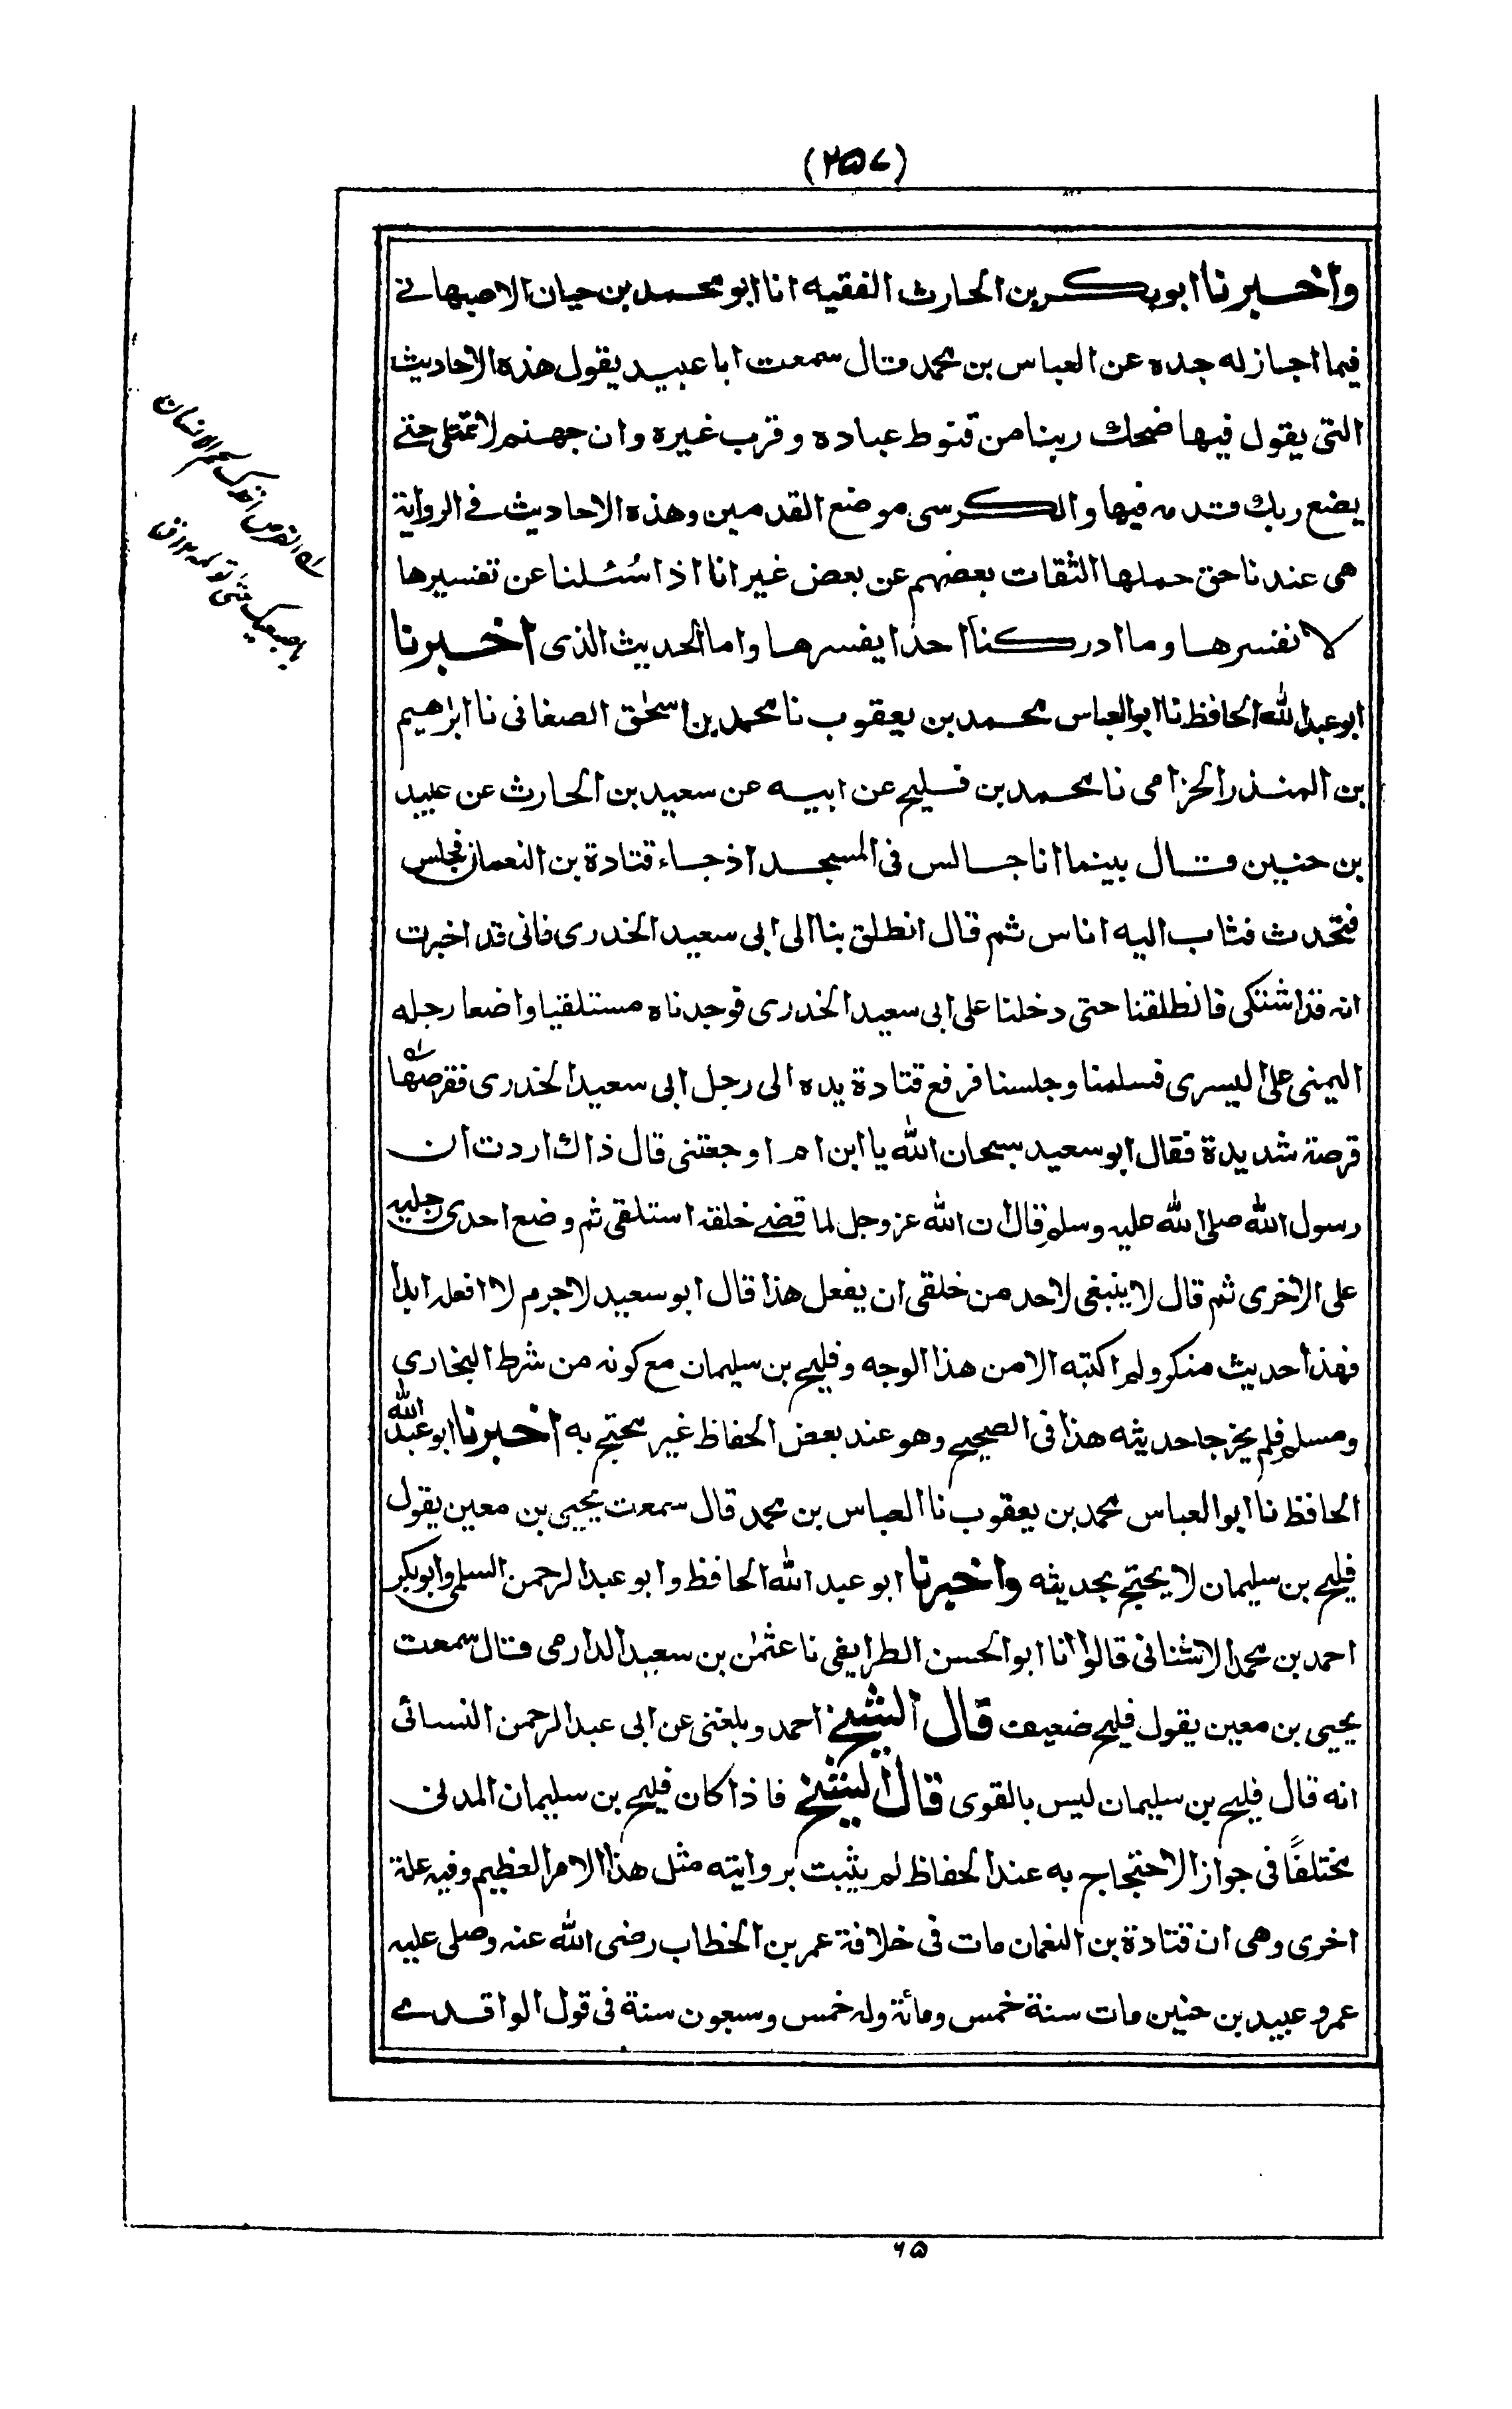 (٢٥٧)
واخبرنا ابوبكر بن الحارث الفقيه انا ابو محمد بن حيان الاصبهانے
فيما اجاز له جده عن العباس بن محمد قال سمعت ابا عبيد يقول هذه الاحاديث
التى يقول فيها ضحك ربنا من قنوط عباده وقرب غيره وان جهنم لا تمتلى حتے
يضع ربك قدمه فيها والكرسى موضع القدمين وهذه الاحاديث فے الرواية
هى عندنا حق حملها الثقات بعضهم عن بعض غير انا اذا سُئلنا عن تفسيرها
لا نفسرها وما ادركنا احدا يفسرها واما الحديث الذى اخبرنا
ابو عبد الله الحافظ نا ابو العباس محمد بن يعقوب نا محمد بن اسحٰق الصغانى نا ابراهيم
بن المنذر الحزامى نا محمد بن فليح عن ابيه عن سعيد بن الحارث عن عبيد
بن حنين قال بينما انا جالس فى المسجد اذ جاء قتادة بن النعمان فجلس
فتحدث فثاب اليه اناس ثم قال انطلق بنا الى ابى سعيد الخدرى فانى قد اخبرت
انه قد اشتكى فانطلقنا حتى دخلنا على ابى سعيد الخدرى فوجدناه مستلقيا واضعا رجله
اليمنى على اليسرى فسلمنا وجلسنا فرفع قتادة يده الى رجل ابى سعيد الخدرى فقرصها
قرصة شديدة فقال ابو سعيد سبحان الله يا ابن ام اوجعتنى قال ذاك اردت ان
رسول الله صلى الله عليه وسلم قال ان الله عزوجل لما قضے خلقه استلقى ثم وضع احدى رجليه
على الاخرى ثم قال لا ينبغى لاحد من خلقى ان يفعل هذا قال ابو سعيد لا جرم لا افعله ابدا
فهذا حديث منكر ولم اكتبه الا من هذا الوجه وفليح بن سليمان مع كونه من شرط البخارى
ومسلم فلم يخرجا حديثه هذا فى الصحيح وهو عند بعض الحفاظ غير محتج به اخبرنا ابو عبد الله
الحافظ نا ابو العباس محمد بن يعقوب نا العباس بن محمد قال سمعت يحيى بن معين يقول
فليح بن سليمان لا يحتج بحديثه واخبرنا ابو عبد الله الحافظ وابو عبد الرحمن السلمى وابوبكر
احمد بن محمد الاشنانى قالوا انا ابو الحسن الطرايفى نا عثمٰن بن سعيد الدارمى قال سمعت
يحيى بن معين يقول فليح ضعيف قال الشيخ احمد وبلغنى عن ابى عبد الرحمن النسائى
انه قال فليح بن سليمان ليس بالقوى قال الشيخ فاذا كان فليح بن سليمان المدنى
مختلفًا فى جواز الاحتجاج به عند الحفاظ لم يثبت بروايته مثل هذا الامر العظيم وفيه علة
اخرى وهى ان قتادة بن النعمان مات فى خلافة عمر بن الخطاب رضى الله عنه وصلى عليه
عمر وعبيد بن حنين مات سنة خمس ومائة وله خمس وسبعون سنة فى قول الواقدے
لحم الانسان
باصبعيك حتى تؤلمه
٦٥